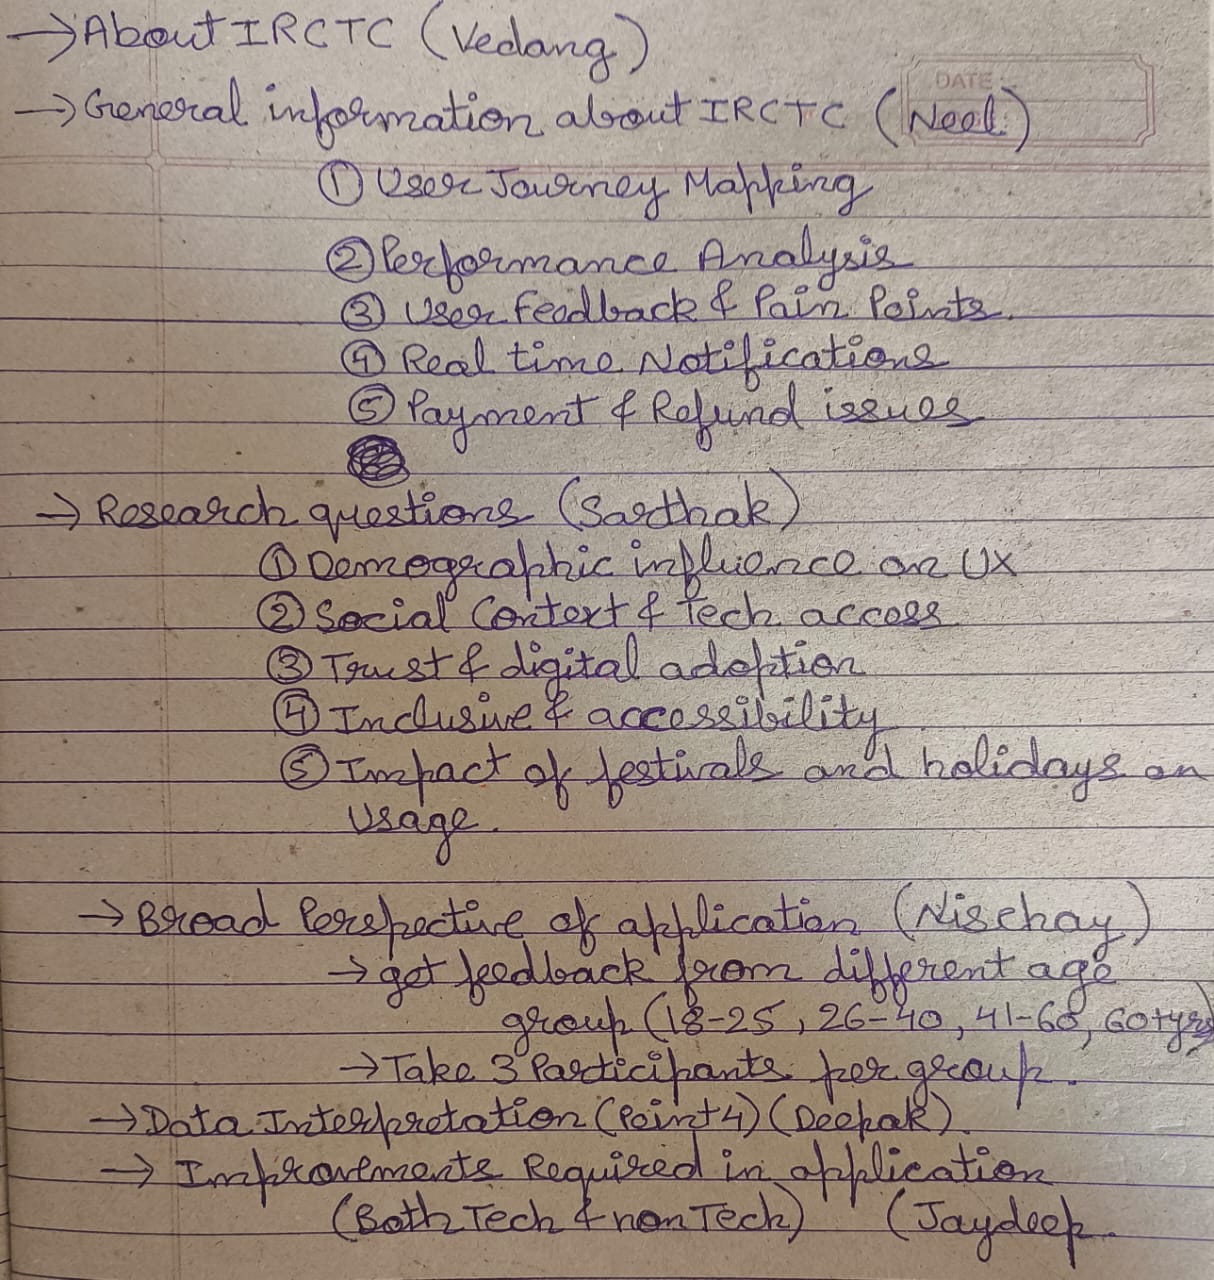 → About IRCTC (Vedang)
DATE :
→ General information about IRCTC (Neel)
① User Journey Mapping
② Performance Analysis
③ User Feedback & Pain Points.
④ Real time Notifications
⑤ Payment & Refund issues
→ Research questions (Sarthak)
① Demographic influence on UX
② Social Context & Tech access
③ Trust & digital adoption
④ Inclusive & accessibility
⑤ Impact of festivals and holidays on
Usage.
→ Broad Perspective of application (Nischay)
→ get feedback from different age
group (18-25, 26-40, 41-60, 60+yrs)
→ Take 3 Participants per group.
→ Data Interpretation (Point 4) (Deepak).
→ Improvements Required in application
(Both Tech & non Tech) (Jaydeep.